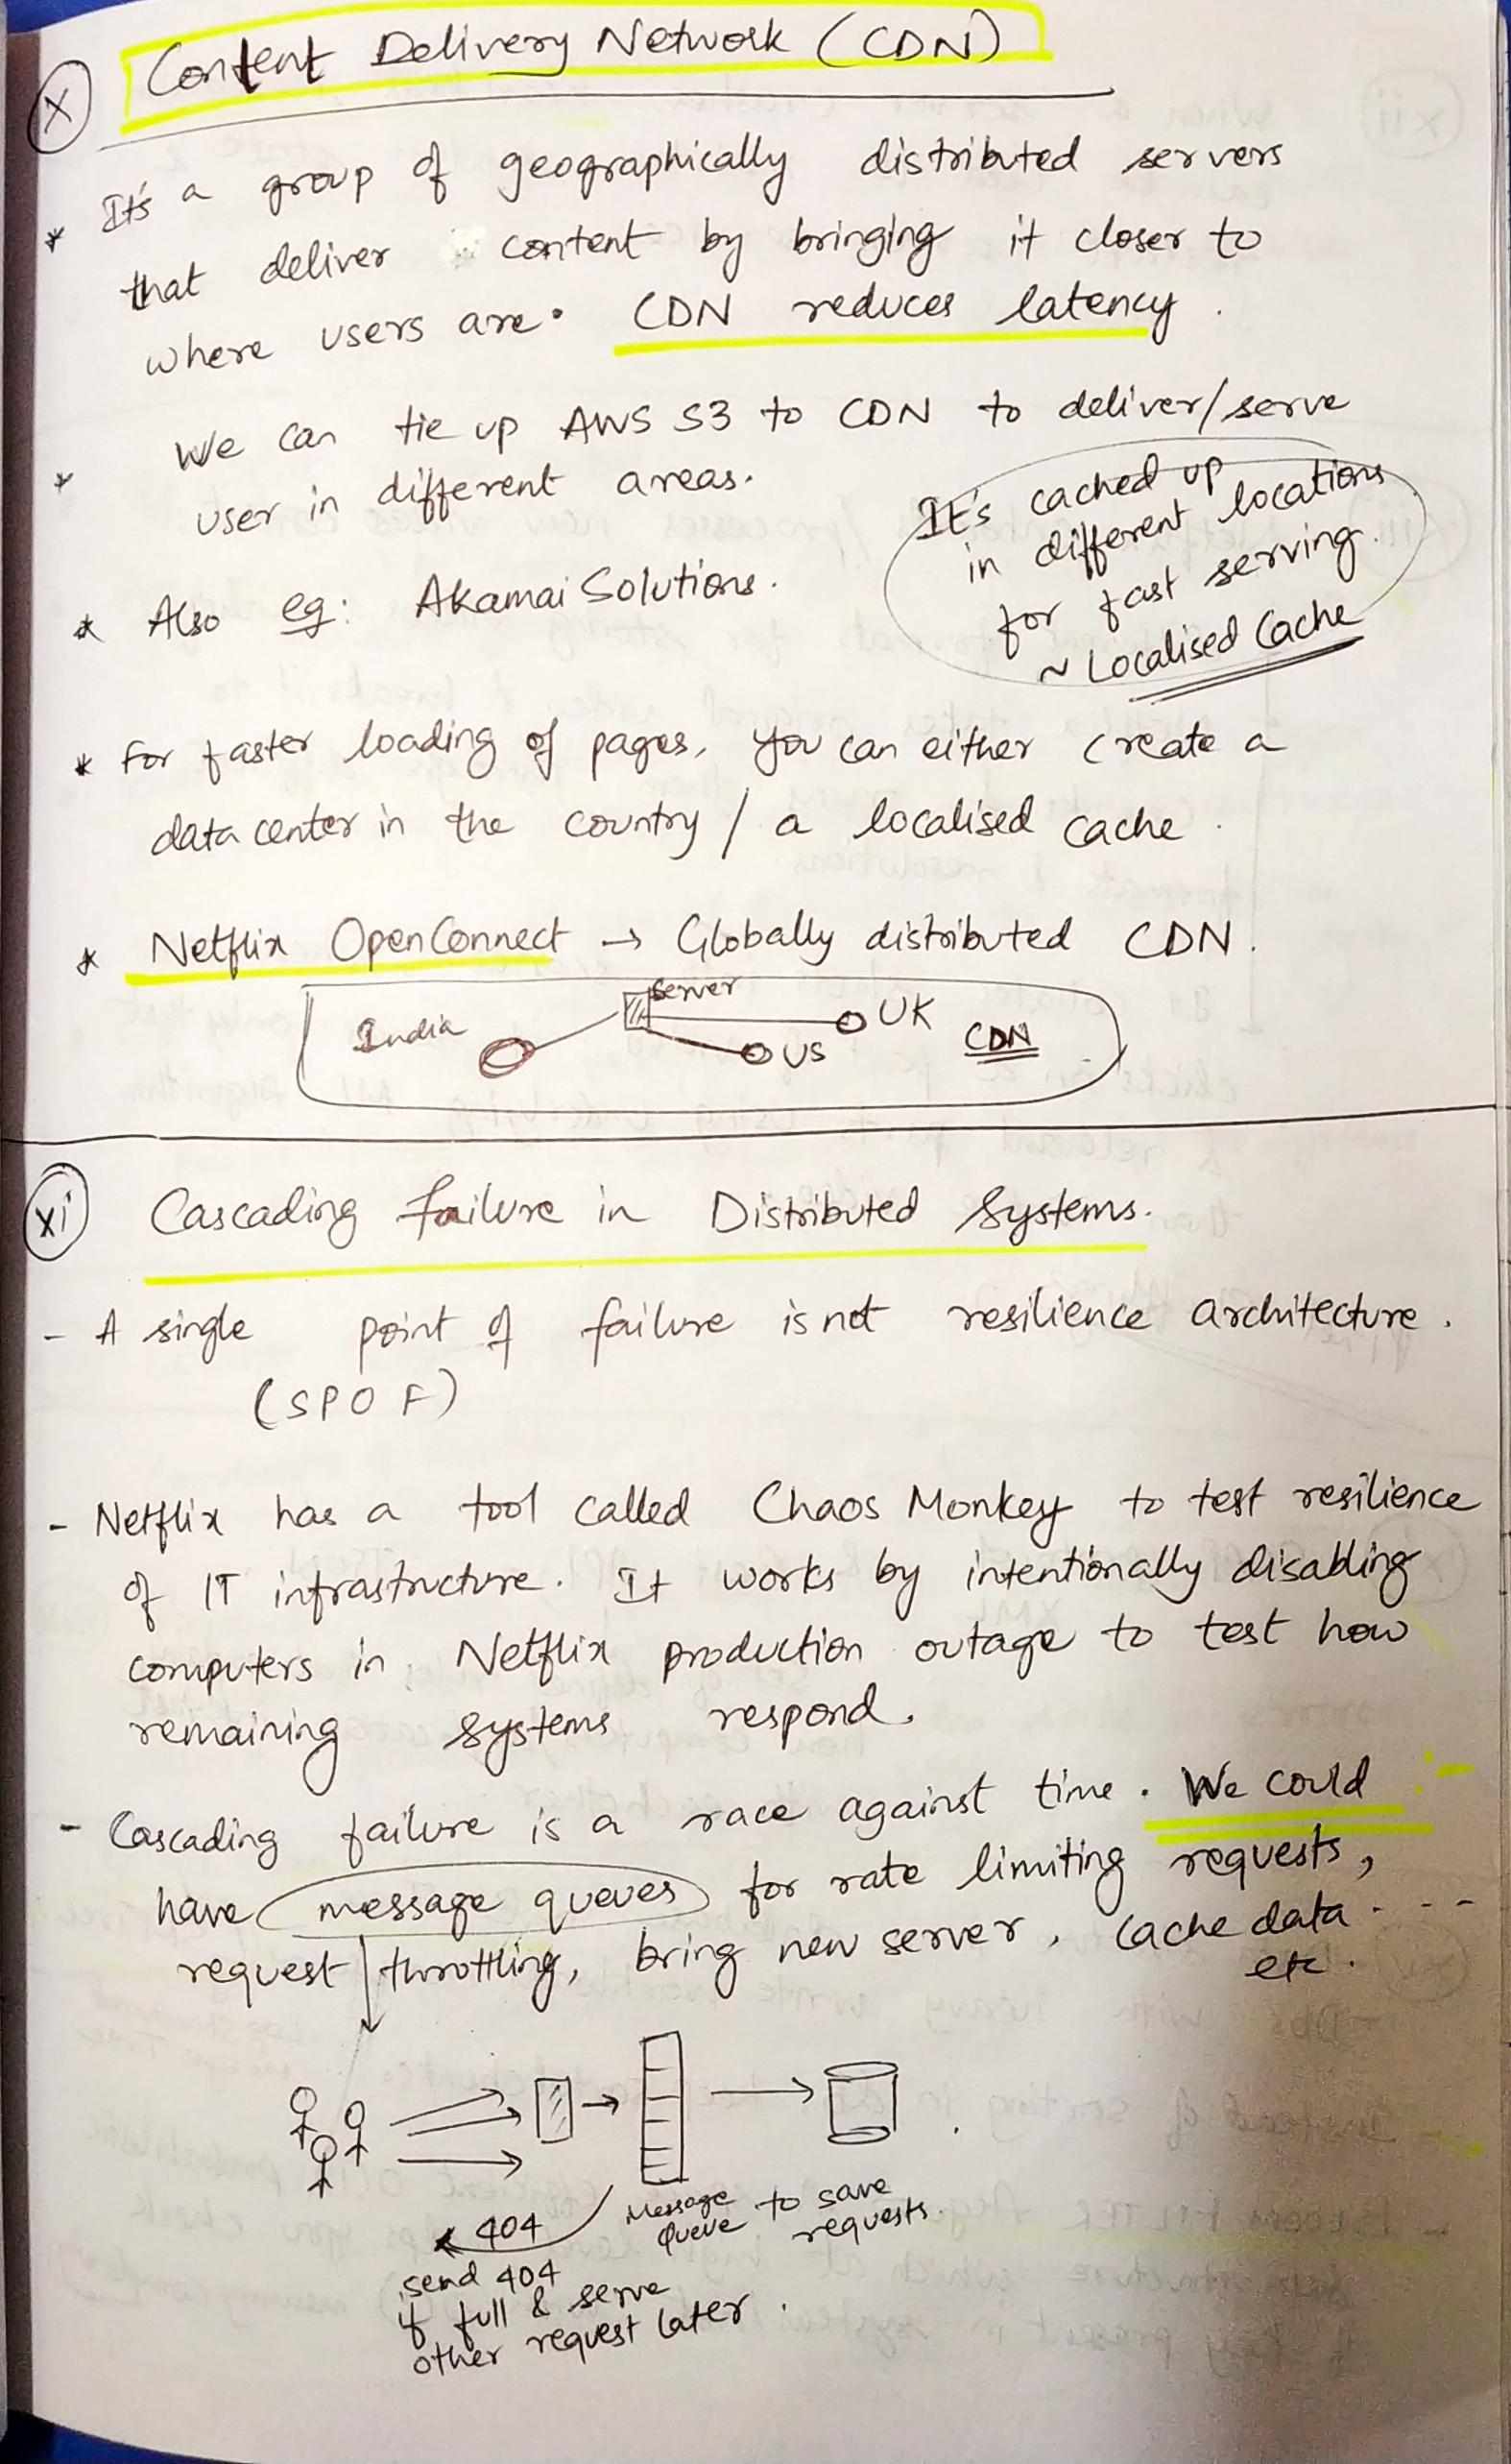 X Content Delivery Network (CDN)
* It's a group of geographically distributed servers
that deliver content by bringing it closer to
where users are. CDN reduces latency.
* We can tie up AWS S3 to CDN to deliver/serve
user in different areas.
It's cached up
in different locations
for fast serving.
~ Localised Cache
* Also eg: Akamai Solutions.
* For faster loading of pages, you can either create a
data center in the country / a localised cache.
* Netflix OpenConnect → Globally distributed CDN.
Server
India
UK
US
CDN
xi Cascading failure in Distributed Systems.
- A single point of failure is not resilience architecture.
(SPOF)
- Netflix has a tool called Chaos Monkey to test resilience
of IT infrastructure. It works by intentionally disabling
computers in Netflix production outage to test how
remaining systems respond.
- Cascading failure is a race against time. We could :-
have message queues for rate limiting requests,
request throttling, bring new server, cache data ....
etc.
404
Message
Queue to save
requests.
send 404
if full & serve
other request later.